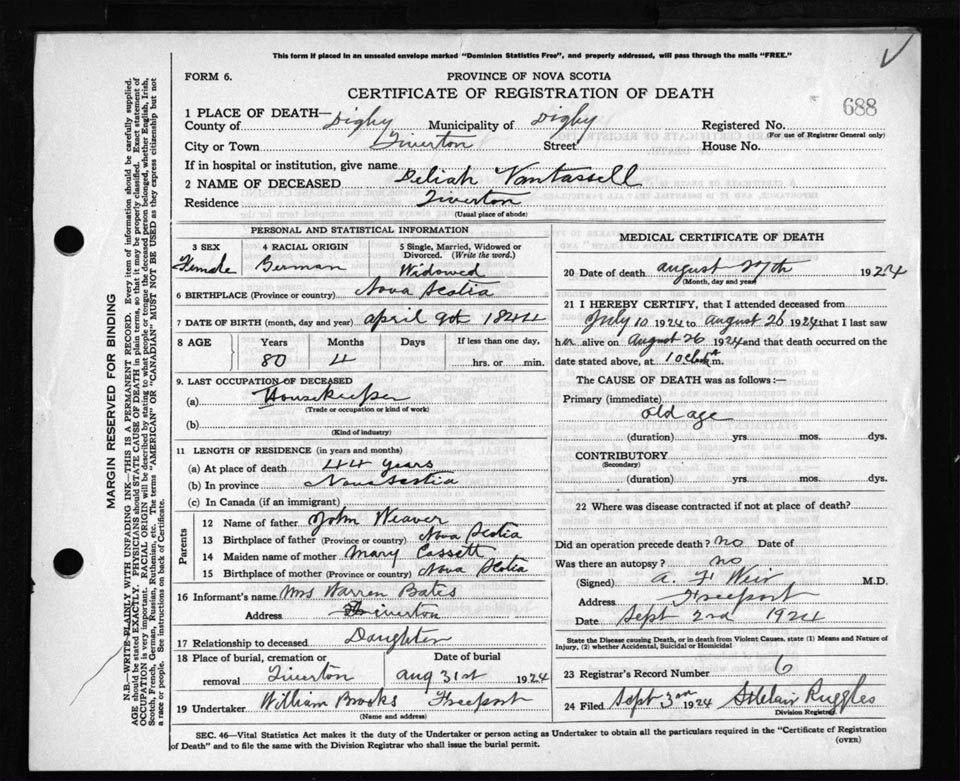 This form if placed in an unsealed envelope marked "Dominion Statistics Free", and properly addressed, will pass through the mails "FREE."
FORM 6.
PROVINCE OF NOVA SCOTIA
CERTIFICATE OF REGISTRATION OF DEATH
688
1 PLACE OF DEATH—
County of Digby Municipality of Digby Registered No.
(For use of Registrar General only)
City or Town Tiverton Street House No.
If in hospital or institution, give name
2 NAME OF DECEASED Deliah Vantassell
Residence Tiverton
(Usual place of abode)
PERSONAL AND STATISTICAL INFORMATION
3 SEX
Female
4 RACIAL ORIGIN
German
5 Single, Married, Widowed or
Divorced. (Write the word.)
Widowed
6 BIRTHPLACE (Province or country) Nova Scotia
7 DATE OF BIRTH (month, day and year) April 9th 1844
8 AGE Years Months Days If less than one day,
80 4 hrs. or min.
9. LAST OCCUPATION OF DECEASED
(a) Housekeeper
(Trade or occupation or kind of work)
(b)
(Kind of industry)
11 LENGTH OF RESIDENCE (in years and months)
(a) At place of death 44 years
(b) In province Nova Scotia
(c) In Canada (if an immigrant)
Parents
12 Name of father John Weaver
13 Birthplace of father (Province or country) Nova Scotia
14 Maiden name of mother Mary Cossett
15 Birthplace of mother (Province or country) Nova Scotia
16 Informant's name Mrs Warren Bates
Address Tiverton
17 Relationship to deceased Daughter
18 Place of burial, cremation or Date of burial
removal Tiverton Aug 31st 1924
19 Undertaker William Brooks Freeport
(Name and address)
MEDICAL CERTIFICATE OF DEATH
20 Date of death August 27th 1924
(Month, day and year)
21 I HEREBY CERTIFY, that I attended deceased from
July 10 1924 to August 26 1924 that I last saw
her alive on August 26 1924 and that death occurred on the
date stated above, at 1 oclock A m.
The CAUSE OF DEATH was as follows:—
Primary (immediate)
old age
(duration) yrs. mos. dys.
CONTRIBUTORY
(Secondary)
(duration) yrs. mos. dys.
22 Where was disease contracted if not at place of death?
Did an operation precede death? no Date of
Was there an autopsy? no
(Signed) A. F Weir M.D.
Address Freeport
Date Sept 2nd 1924
State the Disease causing Death, or in death from Violent Causes, state (1) Means and Nature of
Injury, and (2) whether Accidental, Suicidal or Homicidal
23 Registrar's Record Number 6
24 Filed Sept 3rd 1924 StClair Ruggles
Division Registrar
SEC. 46—Vital Statistics Act makes it the duty of the Undertaker or person acting as Undertaker to obtain all the particulars required in the "Certificate of Registration
of Death" and to file the same with the Division Registrar who shall issue the burial permit.
(OVER)
MARGIN RESERVED FOR BINDING
N.B.—WRITE PLAINLY WITH UNFADING INK—THIS IS A PERMANENT RECORD. Every item of information should be carefully supplied.
AGE should be stated EXACTLY. PHYSICIANS should STATE CAUSE OF DEATH in plain terms, so that it may be properly classified. Exact statement of
OCCUPATION is very important. RACIAL ORIGIN will be described by stating to what people or tongue the deceased person belonged, whether English, Irish,
Scotch, French, German, Russian, Ruthenian, etc. The terms "AMERICAN" OR "CANADIAN" MUST NOT BE USED as they express citizenship but not
a race or people. See instructions on back of Certificate.